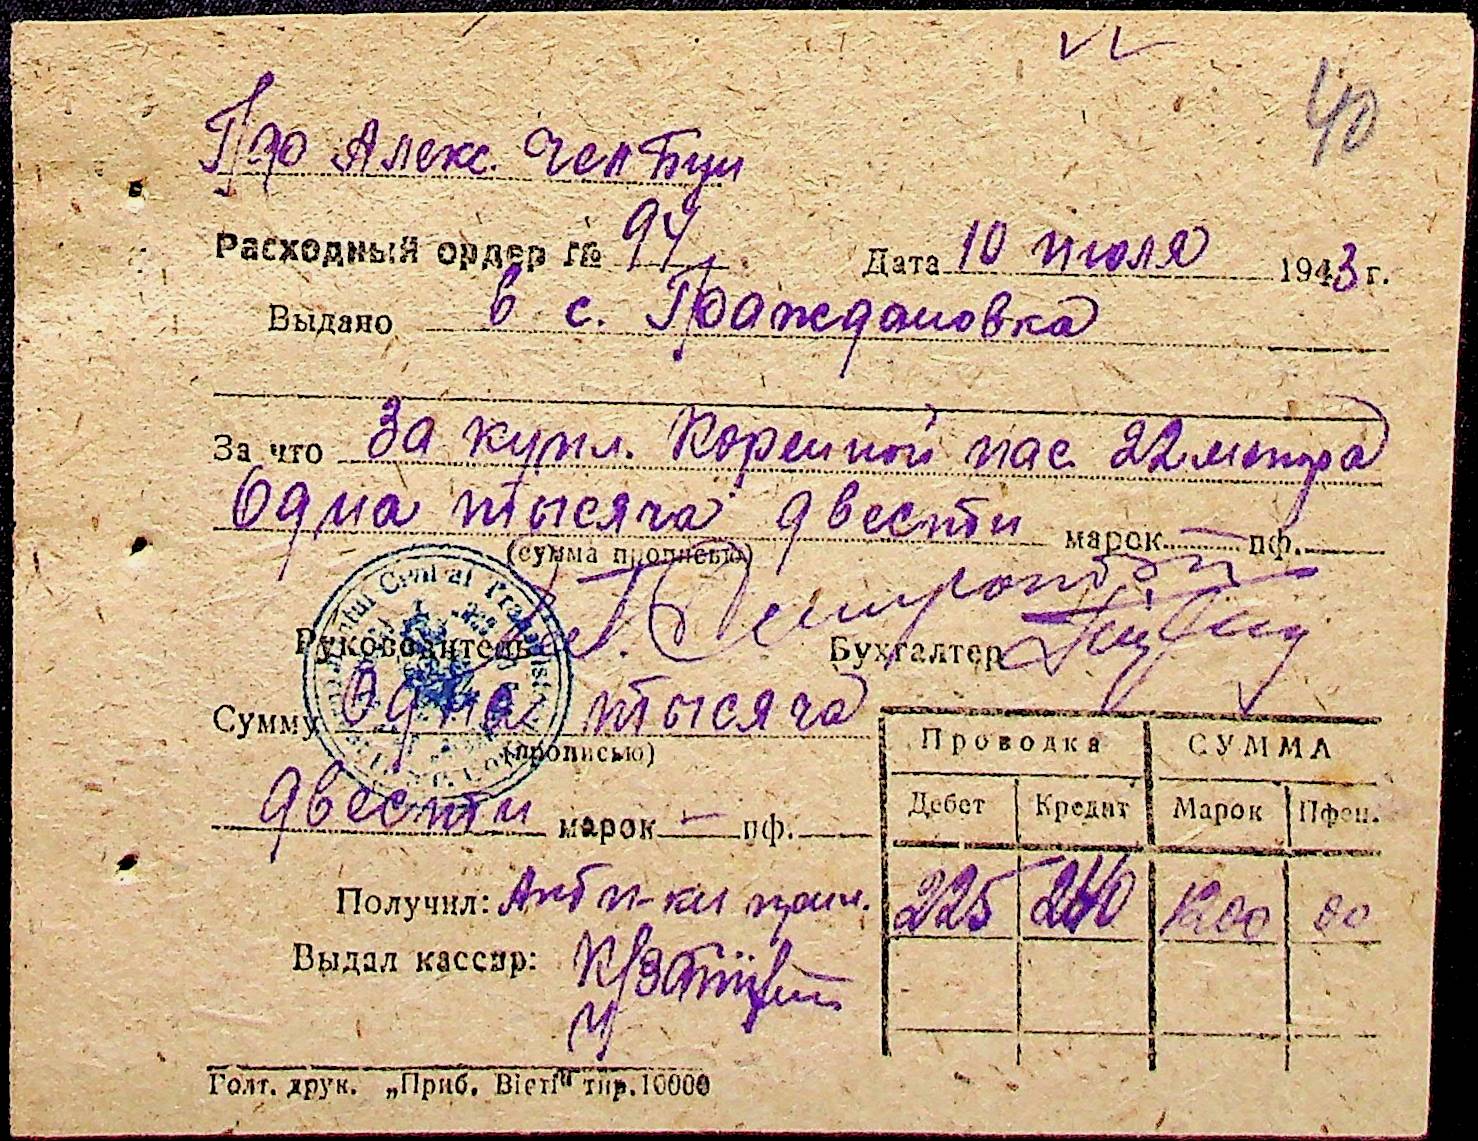 40
Алекс.
Расходный ордер № 94
Дата 10 июля 1943 г.
Выдано в с. Граждановка
За что За купл. Кореной пас. 22 метра
Одна тысяча двести марок — пф.
(сумма прописью)
Руководитель
Бухгалтер
Сумму Одна тысяча
(прописью)
двести марок — пф.
Проводка СУММА
Дебет Кредит Марок Пфен.
225 240 1200 00
Получил:
Выдал кассир:
Голт. друк. „Приб. Вісті" тир. 10000